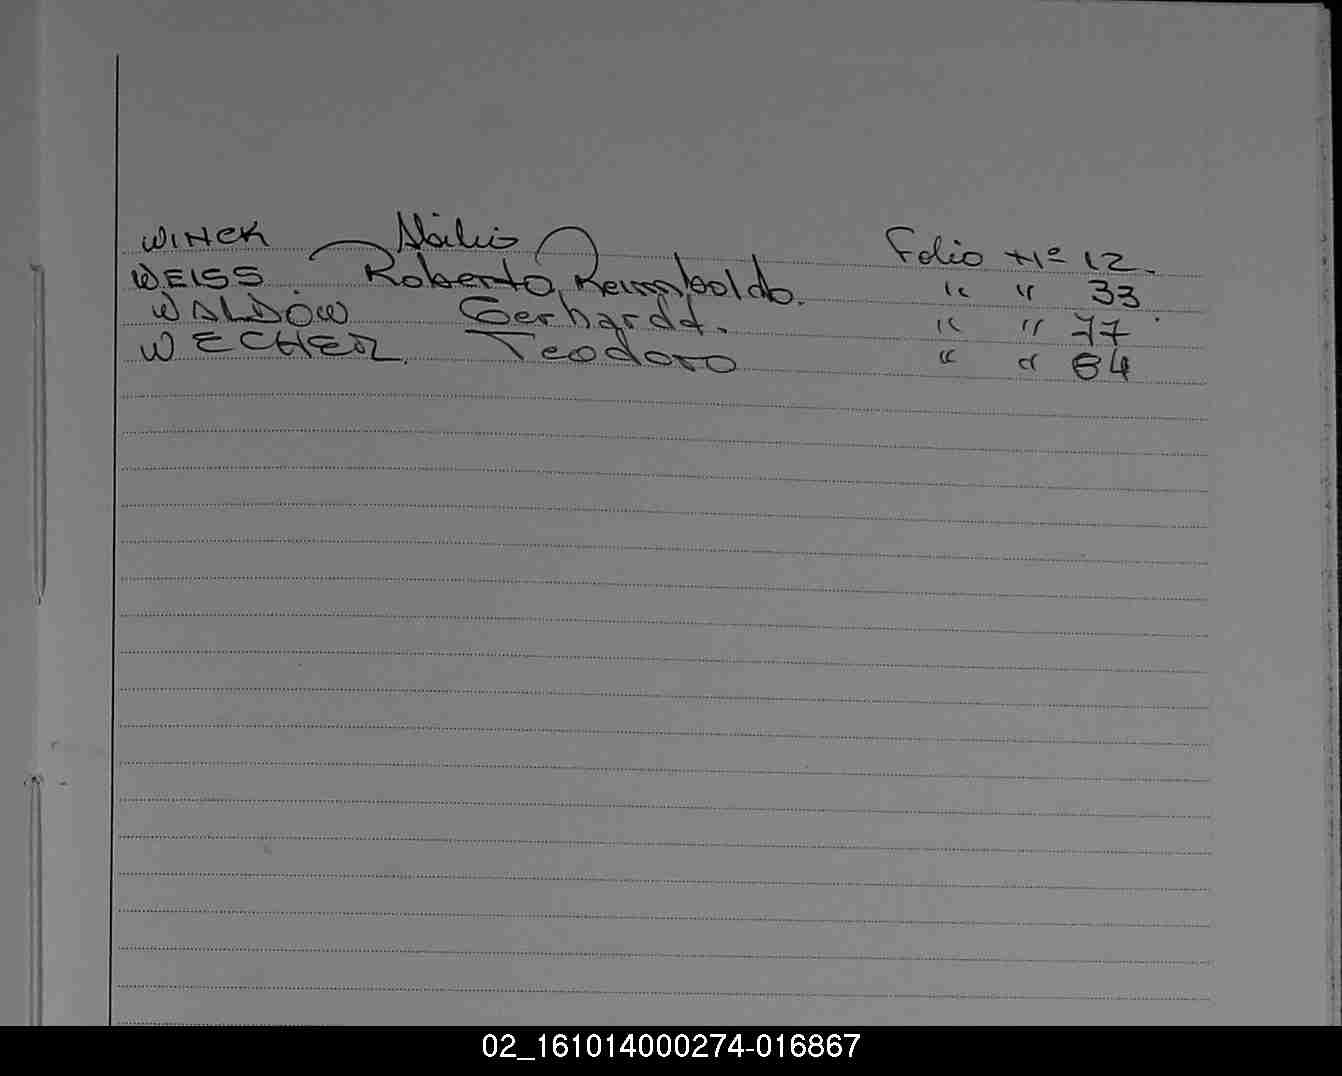 WINCK Abilio Folio Nº 12.
WEISS. Roberto Reimboldo. " " 33
WALDOW Gerhardt. " " 77
WECHER. Teodoro " " 84
02_161014000274-016867